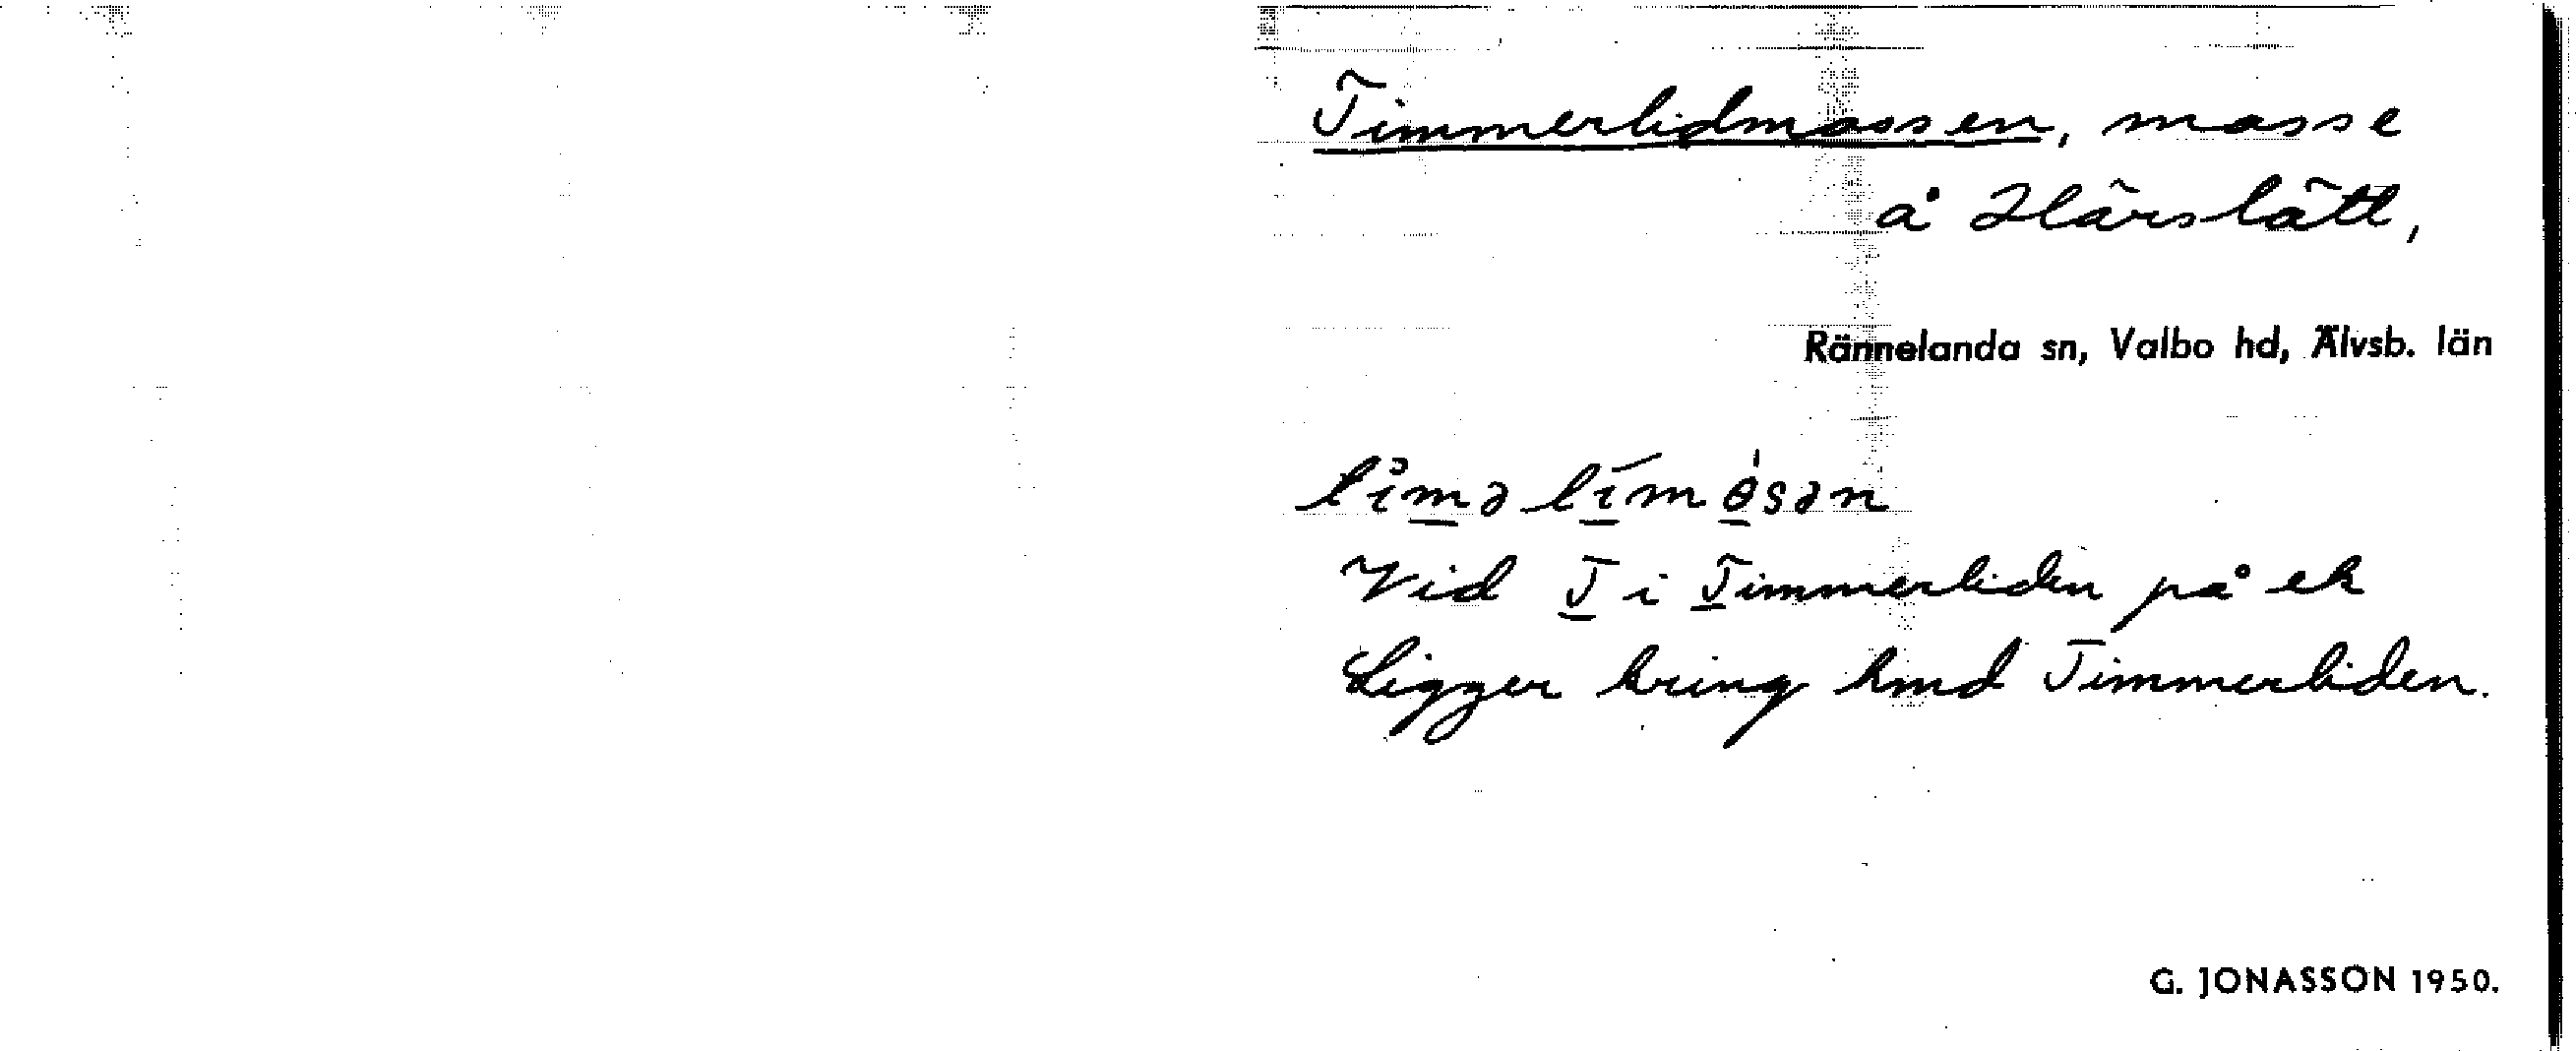 Timmerlidmossen, mosse
å Härslätt,
Rännelanda sn, Valbo hd, Älvsb. län
Vid T i Timmerliden på ek
Ligger kring hmd Timmerliden.
G. JONASSON 1950.